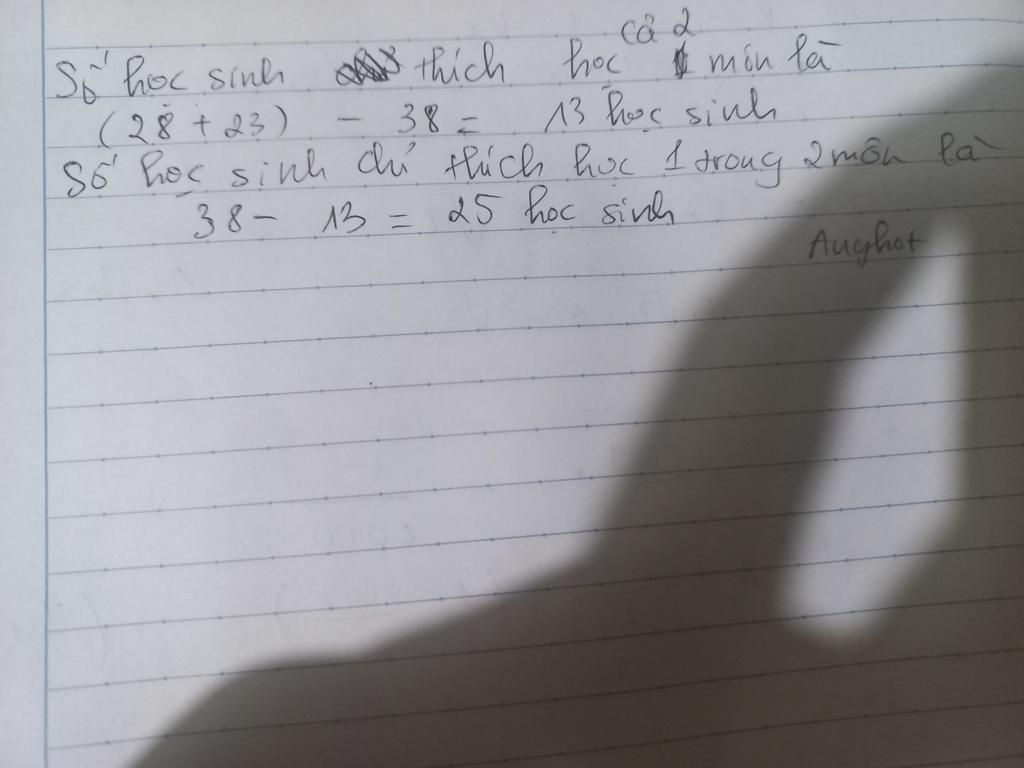 Số học sinh thích học cả 2 môn là
(28 + 23) - 38 = 13 học sinh
Số học sinh chỉ thích học 1 trong 2 môn là
38 - 13 = 25 học sinh
Aughot